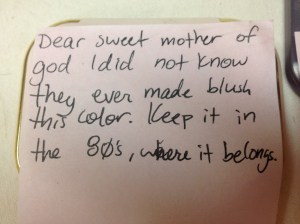 Dear sweet mother of
god I did not know
they ever made blush
this color. Keep it in
the 80's, where it belongs.